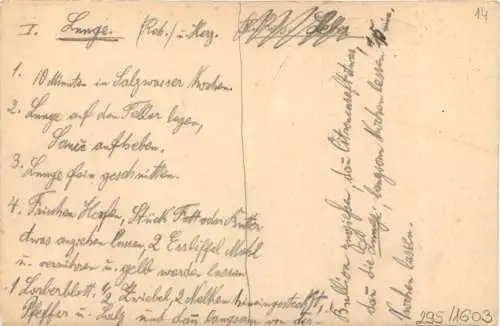 I. Lunge. (Reh.) u. Herz.
14
1. 10 Minuten in Salzwasser kochen.
2. Lunge auf den Teller legen,
Sauce aufheben.
3. Lunge fein geschnitten.
4. Frischen Hafen, Stück Fett oder Butter
etwas angehen lassen, 2 Esslöffel Mehl
u. verrühren u. gelb werden lassen
1 Lorberblatt, 1/2 Zwiebel, 2 Nelken hineingesteckt,
Pfeffer u. Salz und dau langsam von der
Bullion zugießen, dau Citronensaft etwas,
dau die Lunge, langsam kochen lassen, 10 Min.
kochen lassen.
295/1603